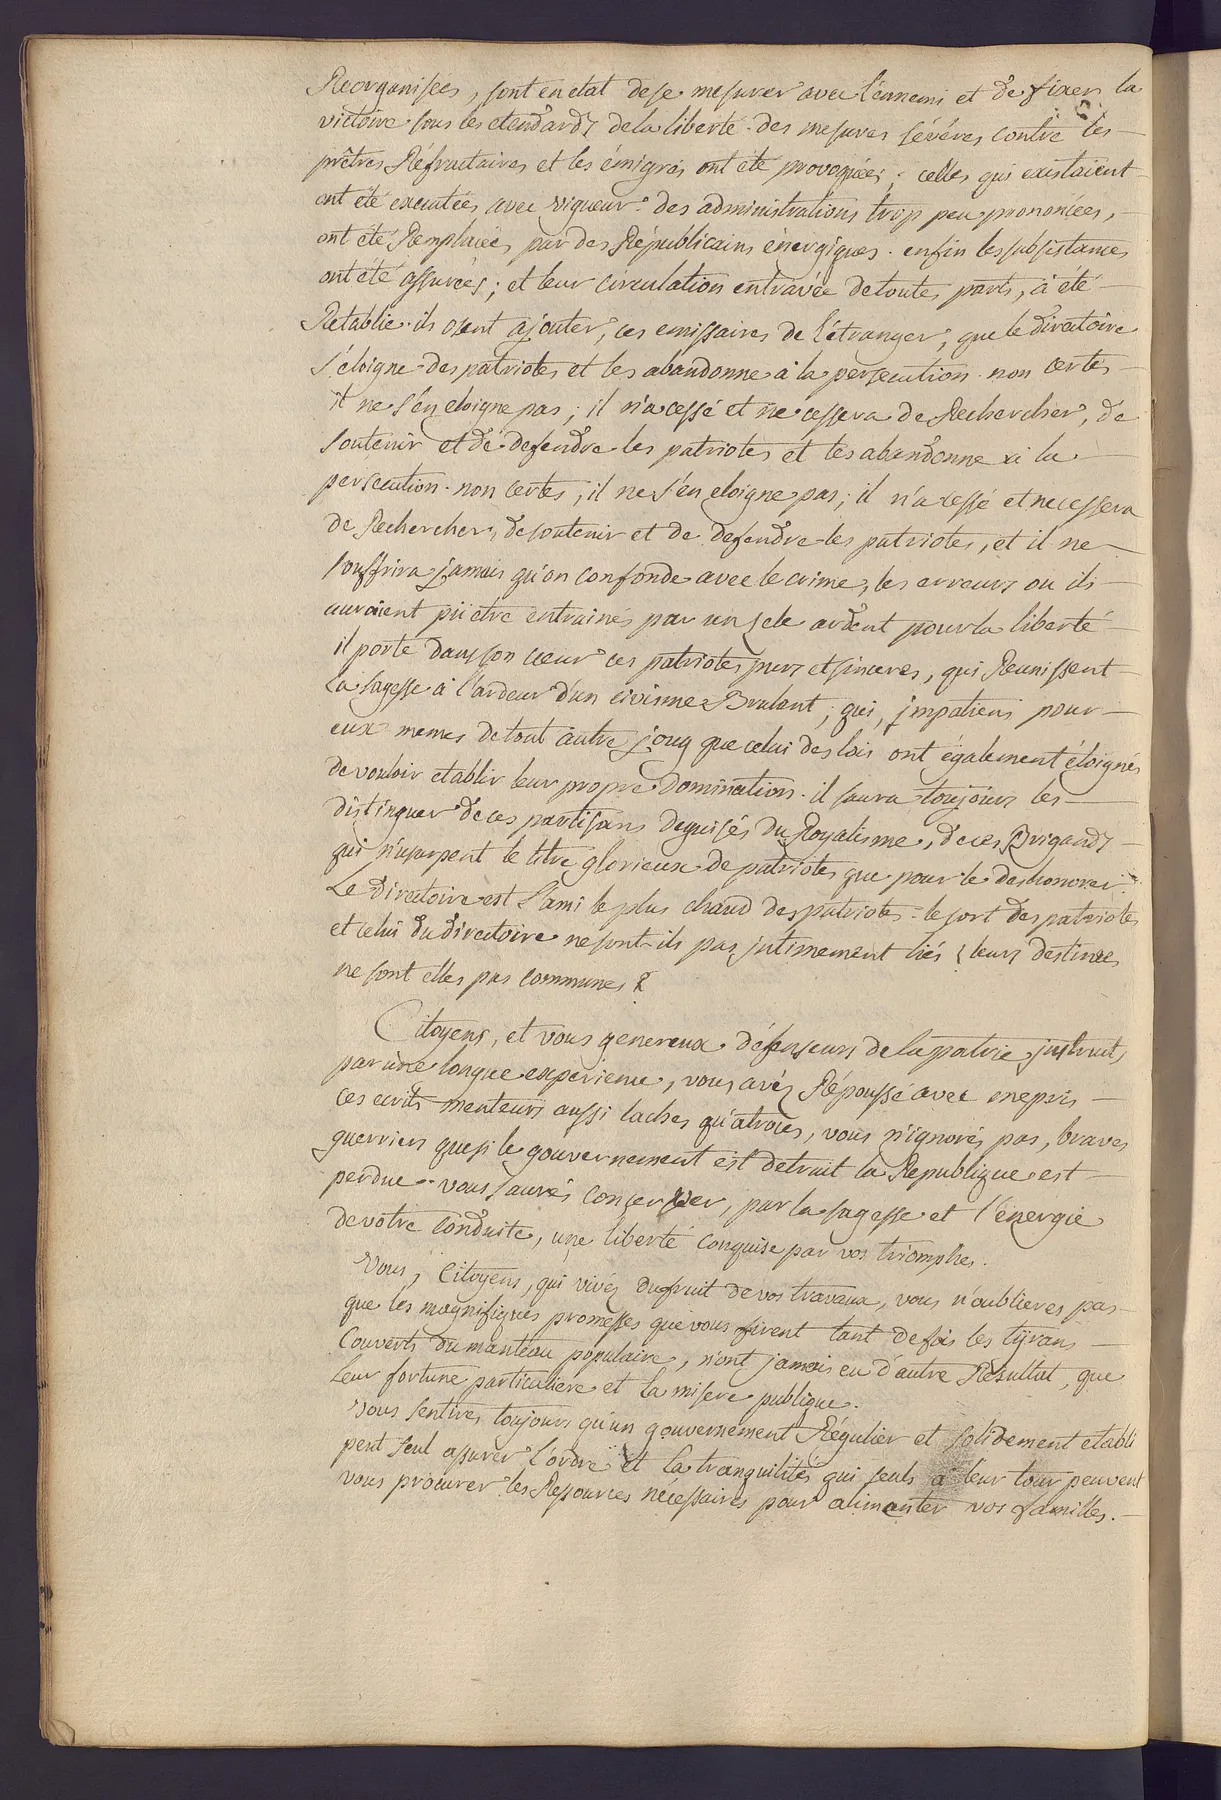 Réorganisées, sont en état de se mesurer avec l'ennemi et de fixer la
victoire sous les etendards de la liberté. des mesures sévères contre les
prêtres Réfractaires et les émigrés ont été provoquées; celles qui existaient
ont été executées avec vigueur. des administrations trop peu prononcées,
ont été Remplacées par des Républicains énergiques. enfin les subsistances
ont été assurées; et leur circulation entravée de toutes parts, à été
Retablie. ils osent ajouter, ces emissaires de l'étranger, que le directoire
s'éloigne des patriotes et les abandonne à la persecution. non certes
il ne s'en eloigne pas; il n'a cessé et ne cessera de Rechercher, de
soutenir et de defendre les patriotes et les abandonne à la
persecution. non certes, il ne s'en eloigne pas; il n'a cessé et ne cessera
de Rechercher, de soutenir et de defendre les patriotes, et il ne
souffrira jamais qu'on confonde avec le crime, les erreurs ou ils
auroient pu etre entrainés par un zele ardent pour la liberté
il porte dans son cœur ces patriotes purs et sinceres, qui Reunissent
la sagesse à l'ardeur d'un civisme Brulant; qui, jmpatiens pour
eux memes de tout autre joug que celui des lois ont également éloignés
de vouloir etablir leur propre domination. il saura toujours les
distinguer de ces partisans deguisés du Royalisme, de ces Brigands
qui n'usurpent le titre glorieux de patriotes que pour le deshonorer.
Le directoire est l'ami le plus chaud des patriotes. le sort des patriotes
et celui du directoire ne sont-ils pas jntimement liés? leurs destinées
ne sont elles pas communes?
Citoyens, et vous genereux défenseurs de la patrie jnstruits
par une longue experience, vous avés Répoussé avec mepris
ces ecrits menteurs aussi laches qu'atroces, vous n'ignorés pas, braves
guerriers que si le gouvernement est detruit la Republique est
perdue. vous saurés conserver, par la sagesse et l'énergie
de votre conduite, une liberté conquise par vos triomphes.
Vous, Citoyens, qui vivéz du fruit de vos travaux, vous n'oublieres pas
que les magnifiques promesses que vous firent tant de fois les tyrans
Couverts du manteau populaire, n'ont jamais eu d'autre Résultat, que
leur fortune particuliere et la misere publique.
vous sentires toujours qu'un gouvernement Régulier et solidement etabli
peut seul assurer l'ordre et la tranquilité qui seuls à leur tour peuvent
vous procurer les Ressources nécessaires pour alimenter vos familles.